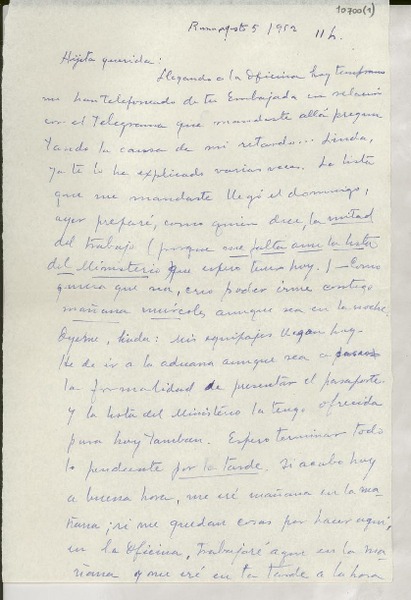 10700(1)
Roma, agosto 5 / 1952 11 h.
Hijita querida:
Llegando a la Oficina hoy temprano
me han telefoneado de tu Embajada en relación
con el telegrama que mandaste allá pregun
tando la causa de mi retardo... Linda,
ya te lo he explicado varias veces. La lista
que me mandaste llegó el domingo,
ayer preparé, como quien dice, la mitad
del trabajo (porque me falta aun la lista
del Ministerio que espero tener hoy.) — Como
quiera que sea, creo poder irme contigo
mañana miércoles aunque sea en la noche.
Oyeme, linda: mis equipajes llegan hoy.
He de ir a la aduana aunque sea a
la formalidad de presentar el pasaporte
y la lista del Ministerio la tengo ofrecida
para hoy tambien. Espero terminar todo
lo pendiente por la tarde. Si acabo hoy
a buena hora, me iré mañana en la ma
ñana; si me quedan cosas por hacer aquí,
en la Oficina, trabajaré aquí en la ma
ñana y me iré en la tarde a la hora